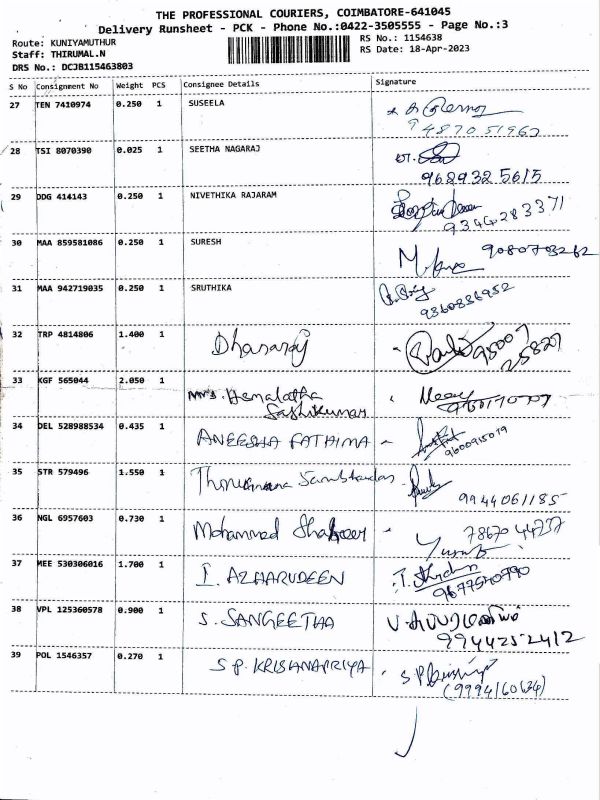 THE PROFESSIONAL COURIERS, COIMBATORE-641045
Delivery Runsheet - PCK - Phone No.:0422-3505555 - Page No.:3
Route: KUNIYAMUTHUR
RS No.: 1154638
Staff: THIRUMAL.N
RS Date: 18-Apr-2023
DRS No.: DCJB115463803
S No Consignment No Weight PCS Consignee Details Signature
27 TEN 7410974 0.250 1 SUSEELA
9487051967
28 TSI 8070390 0.025 1 SEETHA NAGARAJ
9689325615
29 DDG 414143 0.250 1 NIVETHIKA RAJARAM
9344283371
30 MAA 859581086 0.250 1 SURESH
31 MAA 942719035 0.250 1 SRUTHIKA
9360836952
32 TRP 4814806 1.400 1 Dhanaraj
95007
25827
33 KGF 565044 2.050 1 Mrs. Hemalatha
Sashikumar
34 DEL 528988534 0.435 1 ANEESHA FATHIMA
9600915019
35 STR 579496 1.550 1
9944061185
36 NGL 6957603 0.730 1 Mohammed
78670 44737
37 MEE 530306016 1.700 1 I. AZHARUDEEN
9677540990
38 VPL 125360578 0.900 1 S. SANGEETHA
9944252412
39 POL 1546357 0.270 1 S P. KRISHNAPRIYA
(9994160634)